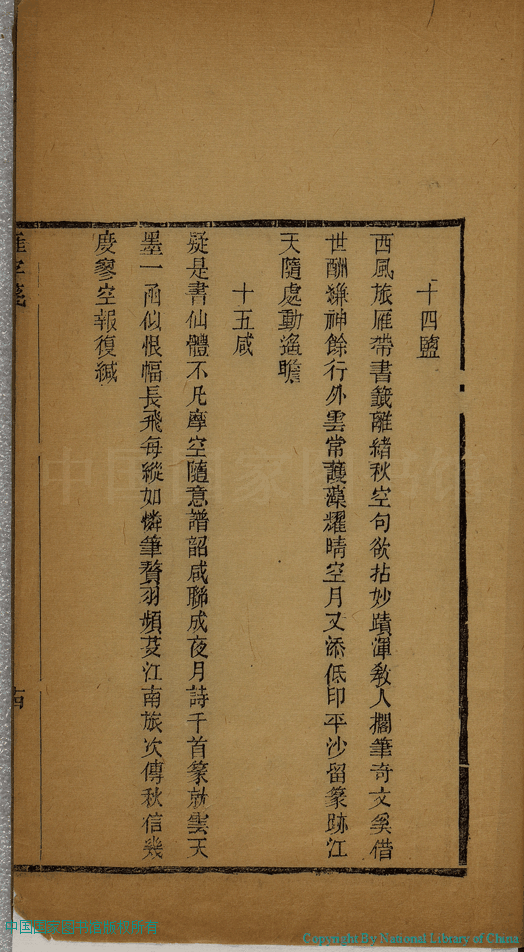 十四鹽
西風旅雁帶書籤離緒秋空句欲拈妙蹟渾教人擱筆奇文奚借
世酬縑神餘行外雲常護藻耀晴空月又添低印平沙留篆跡江
天隨處動遙瞻
十五咸
疑是書仙體不凡摩空隨意譜韶咸聯成夜月詩千首篆就雲天
墨一函似恨幅長飛每縱如憐筆贅羽頻芟江南旅次傳秋信幾
度寥空報復緘
雁字箋
十四
中国国家图书馆
中国国家图书馆版权所有
Copyright By National Library of China